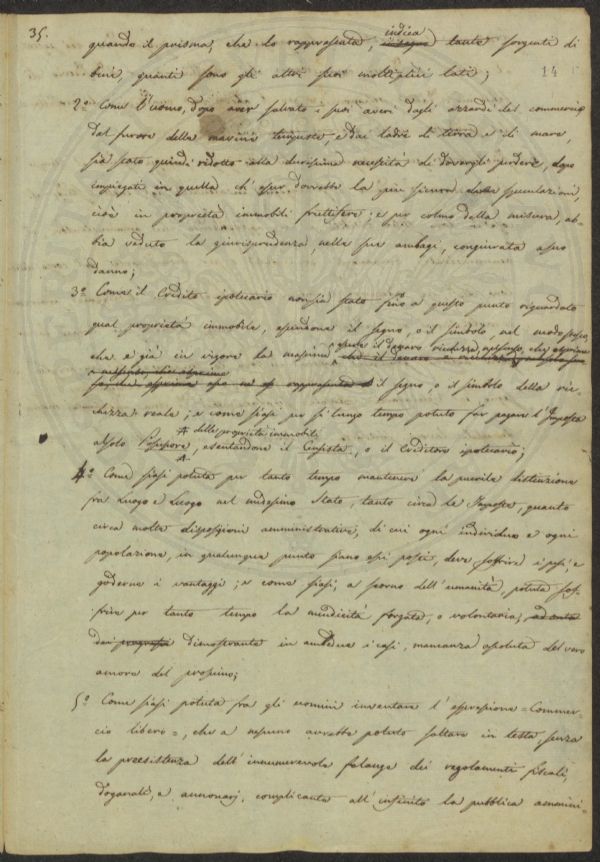 35.
quando il prisma, che lo rappresenta, indica tante sorgenti di
14
beni, quanti sono gli altri suoi moltiplici lati;
2º Come l'uomo, dopo aver salvato i suoi averi dagli azzardi del commercio
dal furore delle marine tempeste, e dai ladri di terra e di mare,
sia stato quindi ridotto alla durissima necessità di doverli perdere, dopo
impiegati in quella ch'esser dovrebbe la più sicura delle speculazioni,
cioè in proprietà immobili fruttifere; e per colmo della misura, ab-
bia veduto la giurisprudenza, nelle sue ambagi, congiurata a suo
danno;
3º Come il Credito ipotecario non sia stato fino a questo punto riguardato
qual proprietà immobile, essendone il segno, o il simbolo nel modo stesso,
che è già in vigore la massima, che il denaro
il segno, o il simbolo della ric-
chezza reale; e come siasi per sì lungo tempo potuto far pagare l'Imposta
delle proprietà immobili
al solo Possessore, esentandone il Censista, o il Creditore ipotecario;
4º Come siasi potuta per tanto tempo mantenere la puerile distinzione
fra Luogo e Luogo nel medesimo Stato, tanto circa le Imposte, quanto
circa molte disposizioni amministrative, di cui ogni individuo e ogni
popolazione, in qualunque punto siano essi posti, deve soffrire i pesi, e
goderne i vantaggi; e come siasi, a scorno dell'umanità, potuta sof-
frire per tanto tempo la mendicità forzata, o volontaria,
dimostrante in ambedue i casi, mancanza assoluta del vero
amore del prossimo;
5º Come siasi potuta fra gli uomini inventare l'espressione = Commer-
cio libero =, che a nessuno avrebbe potuto saltare in testa senza
la preesistenza dell'innumerevole falange dei regolamenti fiscali,
doganali, e annonarj, complicante all'infinito la pubblica ammini-